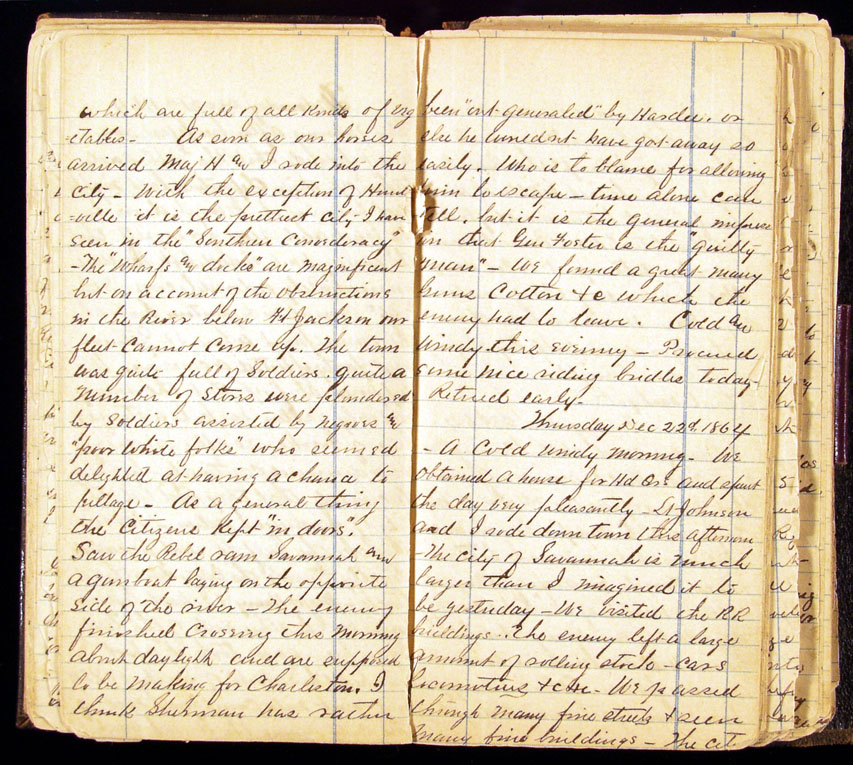 which are full of all kinds of veg
etables - As soon as our horses
arrived Maj H and I rode into the
City - With the exception of Hunts
ville it is the prettiest city I have
seen in the "Southern Conosderacy"
- The "Wharfs and docks" are magnificent
but on account of the obstructions
in the River below Ft Jackson our
fleet cannot come up. The town
was quite full of Soldiers. quite a
number of Stores were plundered
by Soldiers assisted by negroes and
"poor white folks" who seemed
delighted at having a chance to
pillage - As a general thing
the Citizens kept "in doors."
Saw the Rebel ram Savannah and
a gunboat laying on the opposite
side of the river - The enemy
finished crossing this morning
about daylight and are supposed
to be making for Charleston. I
think Sherman has rather
been "out generaled" by Hardee. or
else he wouldnt have got away so
easily. Who is to blame for allowing
him to escape - time alone can
tell. but it is the general impress
ion that Gen Foster is the "guilty
man" - We found a great many
guns Cotton &c which the
enemy had to leave. Cold and
windy this evening - Procured
some nice riding bridles today -
Retired early.
Thursday Dec 22d. 1864
- A cold windy morning - We
obtained a house for Hd Qrs and spent
the day very pleasantly - Lt Johnson
and I rode down town this afternoon
- The city of Savannah is much
larger than I imagined it to
be yesterday - We visited the RR
buildings. The enemy left a large
amount of rolling stock - cars
locomotives &c &c - We passed
through many fine streets & seen
many fine buildings - The cit